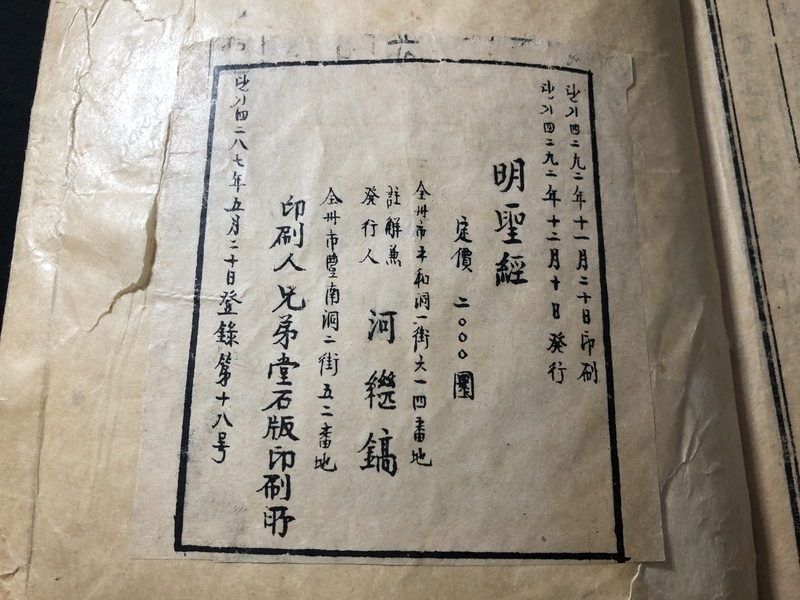 단기四二九二年十一月二十日印刷
단기四二九二年十二月十日發行
明聖經
定價 二〇〇〇圜
全州市太和洞一街六一四番地
註解兼
發行人 河繼鎬
全州市豊南洞二街五二番地
印刷人兄弟堂石版印刷所
단기四二八七年五月二十日登錄第十八号